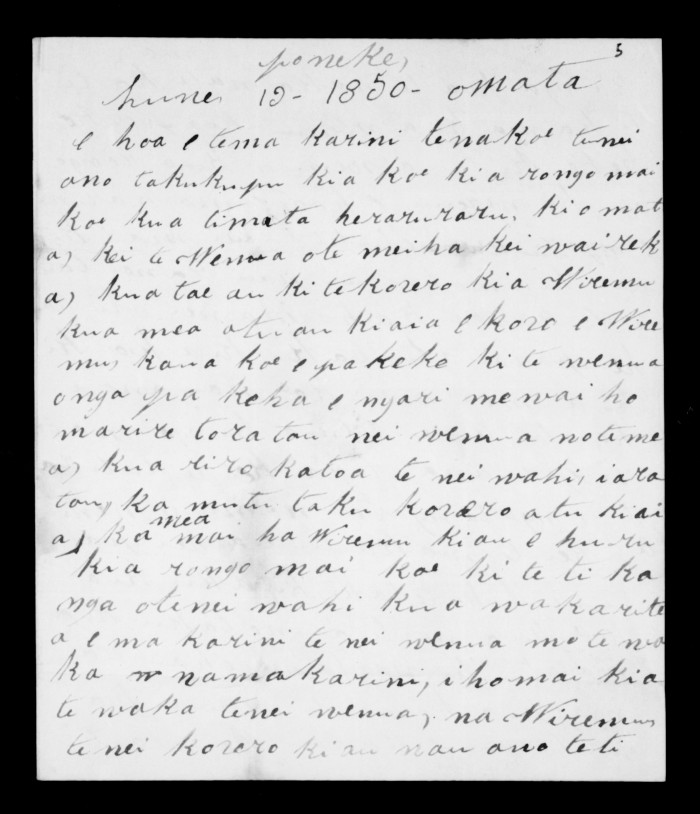 5
poneke,
hune, 19 - 1850 - omata
e hoa e tema karini tena koe tenei
ano takukupu kia koe kia rongo mai
koe kua timata heraruraru, ki omat
a, kei te Wenua ote meiha kei wairek
a, kua tae au ki te korero kia Wiremu
kua mea atu au kiaia e koro e Wire
mu, kaua koe e pakeke ki te wenua
onga pa keha e ngari me wai ho
marire toratou nei wenua noteme
a, kua riro katoa te nei wahi, i ara
tou, ka mutu taku korero atu kiai
a, ka mea mai ha Wiremu kiau e huru
kia rongo mai koe ki te ti ka
nga otenei wahi kua wakarite
a e ma karini te nei wenua mo te wa
ka na makarini, i homai kia
te waka tenei wenua, na Wiremu,
te nei korero kiau nau ano te ti